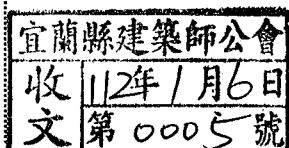 宜蘭縣建築師公會
收文
112年1月6日
第0005號